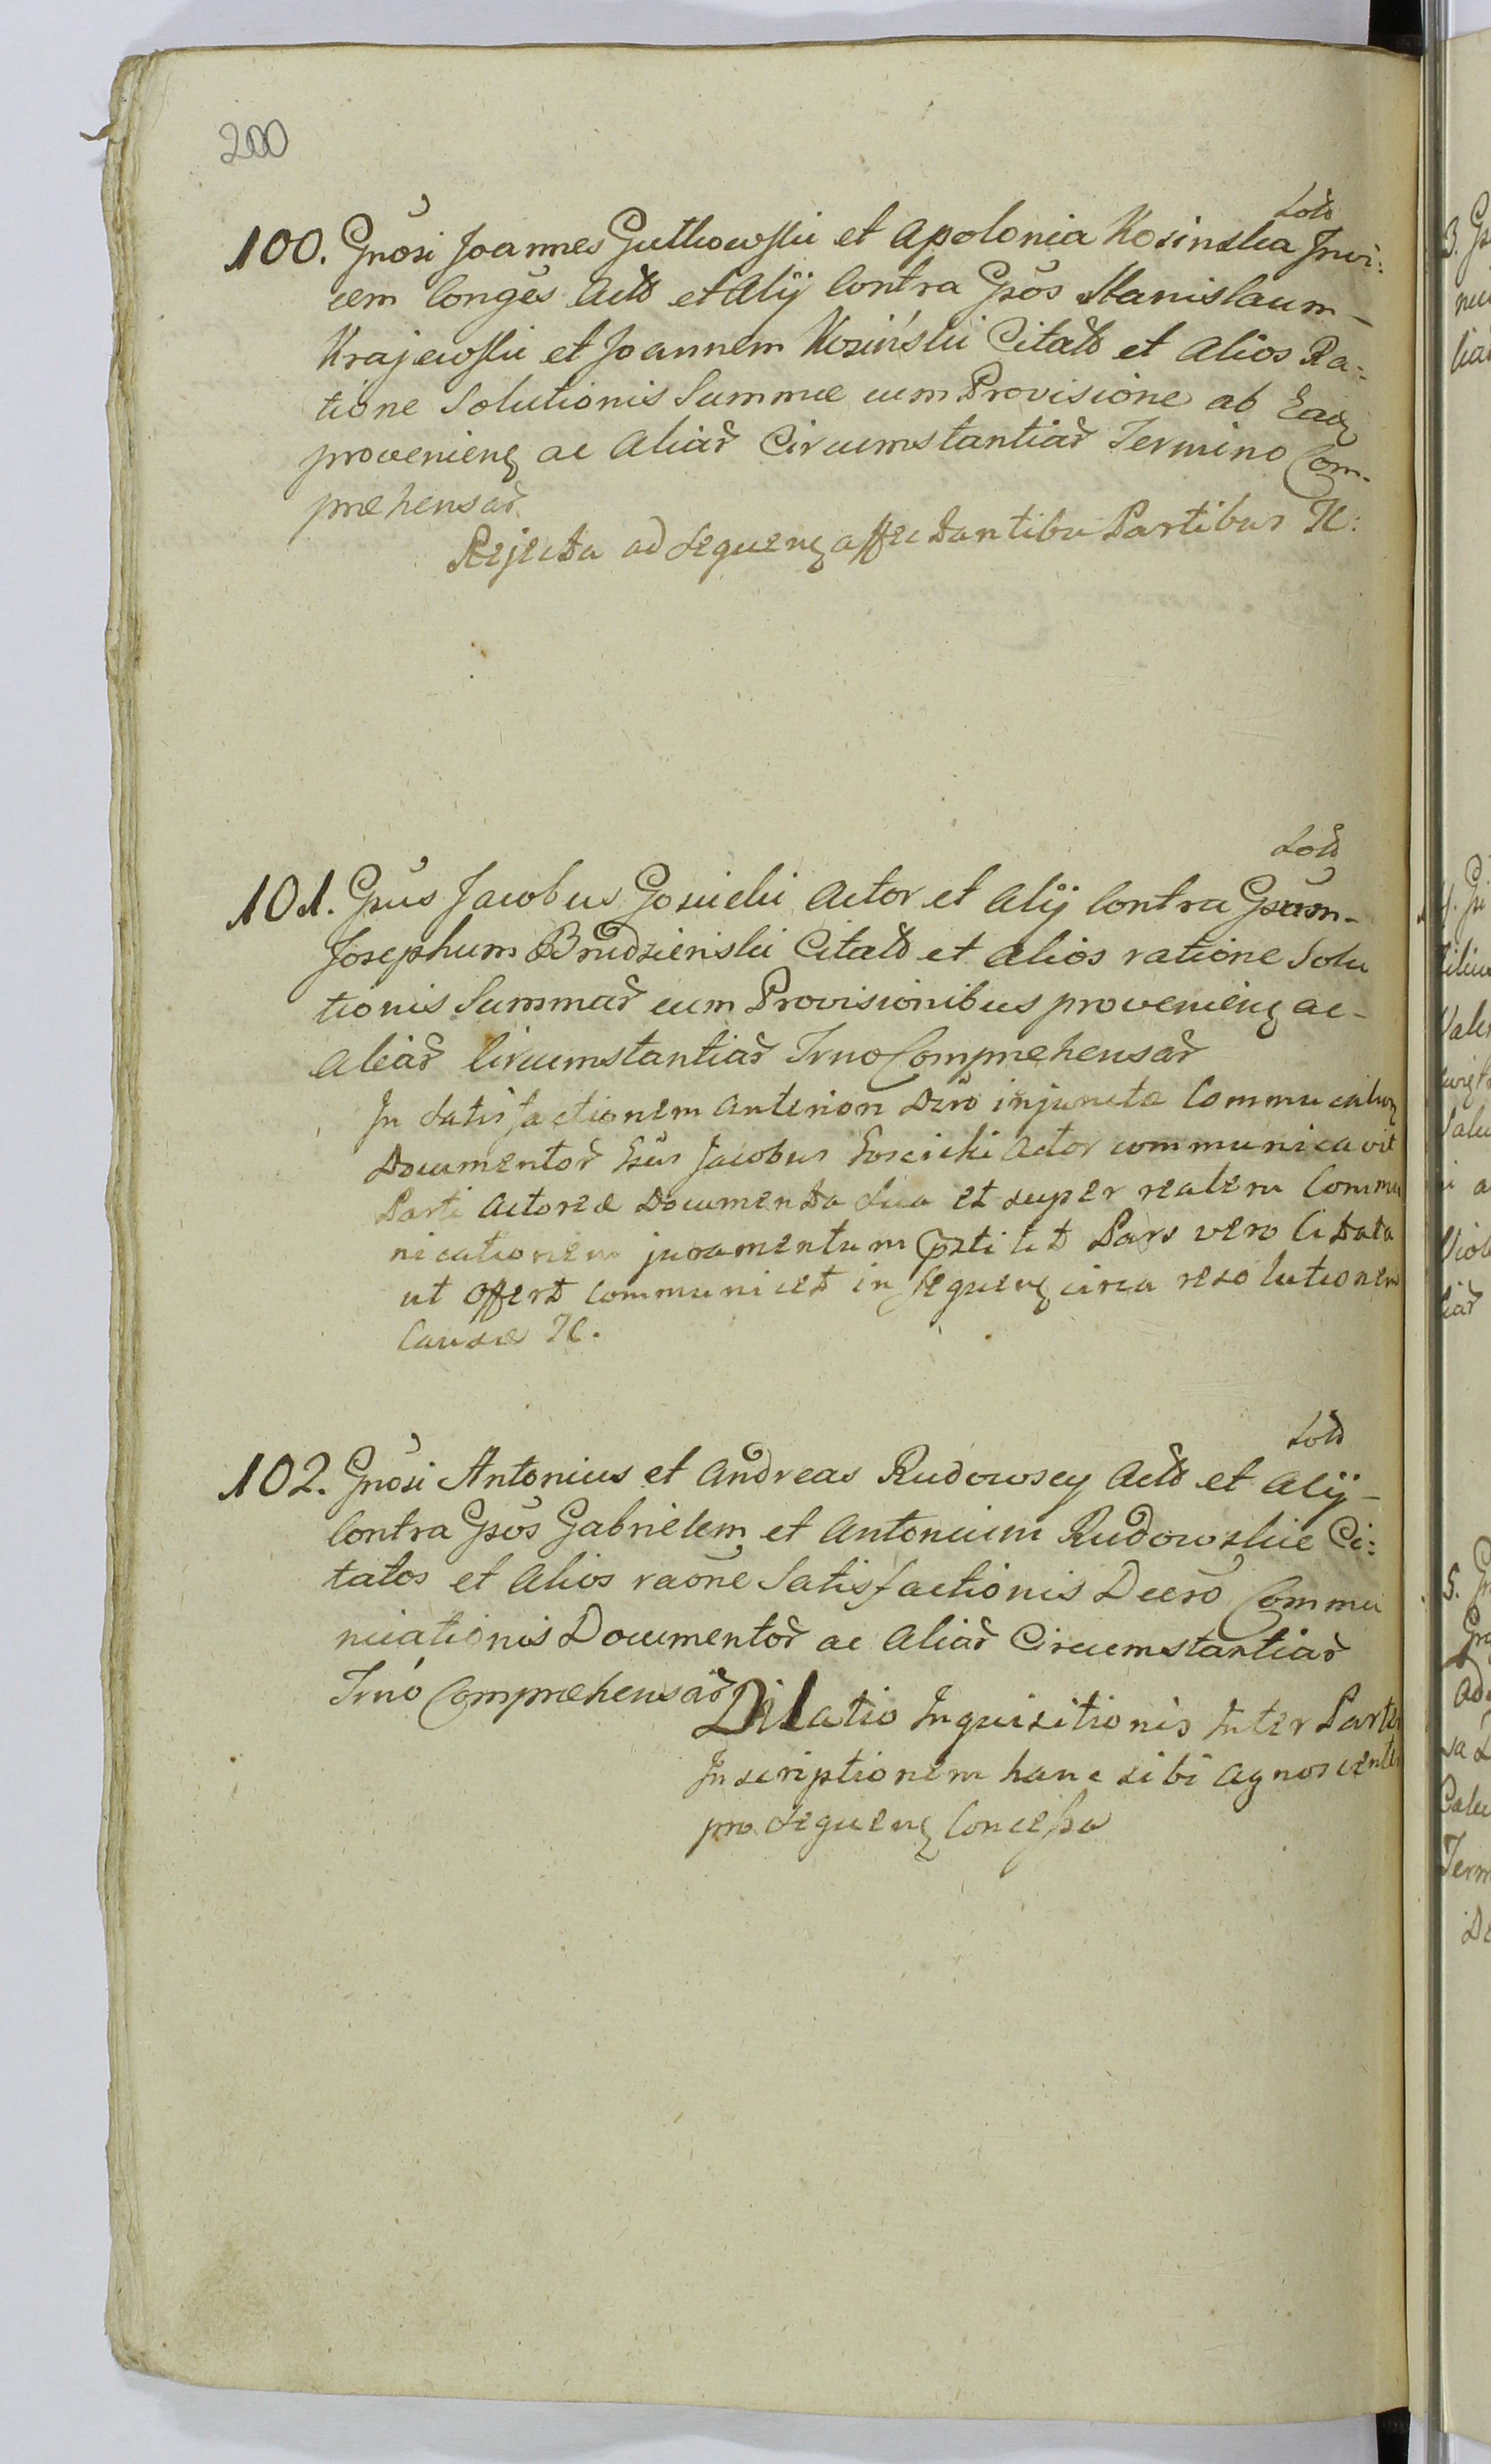 200
Sotd
100. Gnosi Joannes Gutkowski et Apolonia Kosinska Invi:
cem Conges Actd et Alij Contra Gsos Stanislaum -
Krajewski et Joannem Kosiński Citatd et Alios Ra=
tione Solutionis Summæ cum Provisione ab Eaq
provenienq ac Aliar Circumstantiar Termino Com-
præhensar
Rejecta ad sequenq affectantibu Partibus &c:
Sotd
101. Gsus Jacobus Gosicki Actor et Alij Contra Gsum -
Josephum Brudzienski Citatd et Alios ratione Solu
tionis Summar cum Provisionibus provenienq ac -
Aliar Circumstantiar Trno Compræhensar
In Satisfactionem Anterion Dero injuncta Commucationq
Documentor Gsus Jacobus Goscicki Actor communicavit
Parti Actoreæ Documenta Sua et super realem Commu
nicationem juramentum pstitit Pars vero Citata
ut Offert communicet in sequenq circa resolutionem
Causæ &c.
Sotd
102. Gnosi Antonius et Andreas Rudowscy Actd et Alij -
Contra Gsos Gabrielem et Antonium Rudowskie Ci=
tatos et Alios raone Satisfactionis Decro Commu
nicationis Documentor ac Aliar Circumstantiar
Trno Compræhensar
Dilatio Inquisitionis Inter Partes
Inscriptionem hanc sibi agnoscentes
pro sequenq Concessa